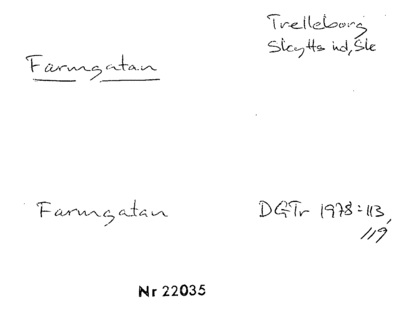 Trelleborg
Skytts hd, Ske
Farmgatan
Farmgatan DGTr 1978:113,
119
Nr 22035